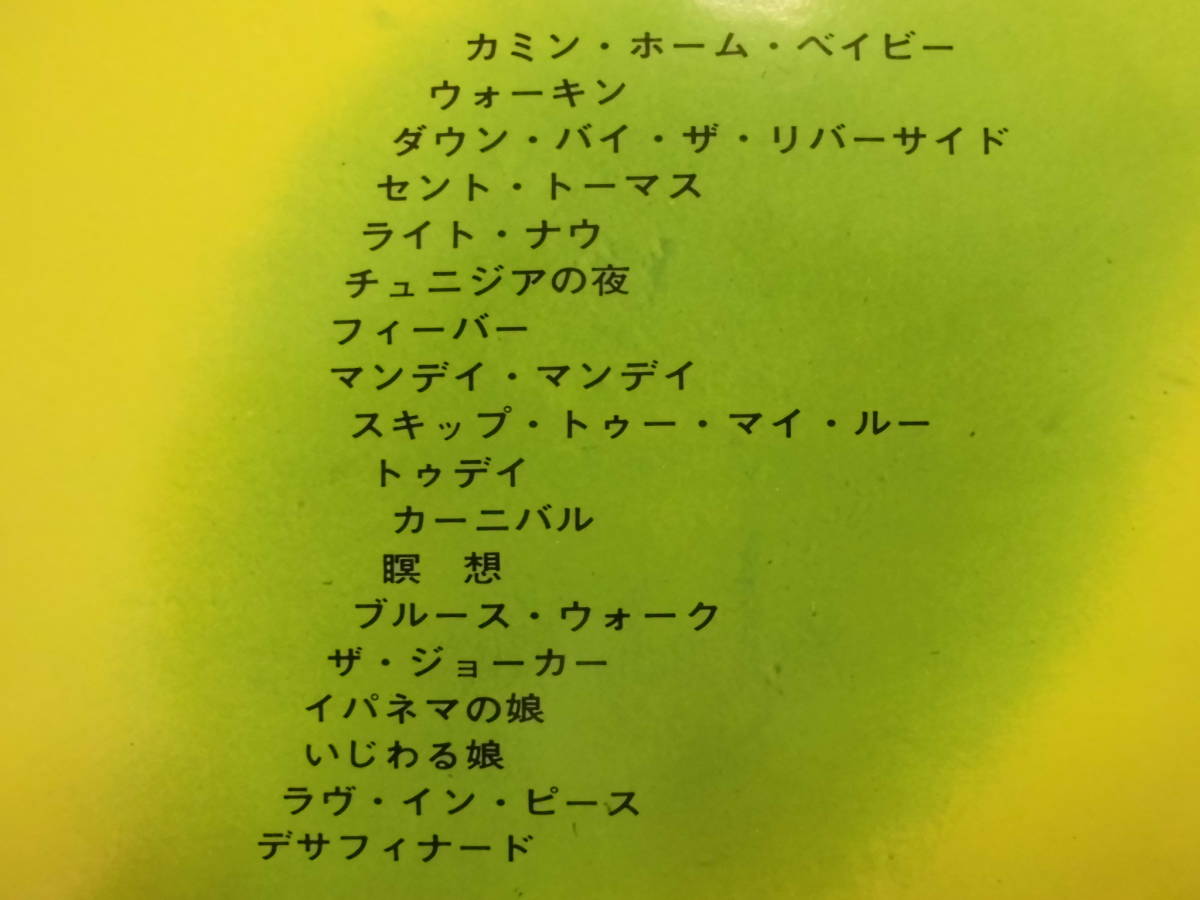 カミン・ホーム・ベイビー
ウォーキン
ダウン・バイ・ザ・リバーサイド
セント・トーマス
ライト・ナウ
チュニジアの夜
フィーバー
マンデイ・マンデイ
スキップ・トゥー・マイ・ルー
トゥデイ
カーニバル
瞑　想
ブルース・ウォーク
ザ・ジョーカー
イパネマの娘
いじわる娘
ラヴ・イン・ピース
デサフィナード